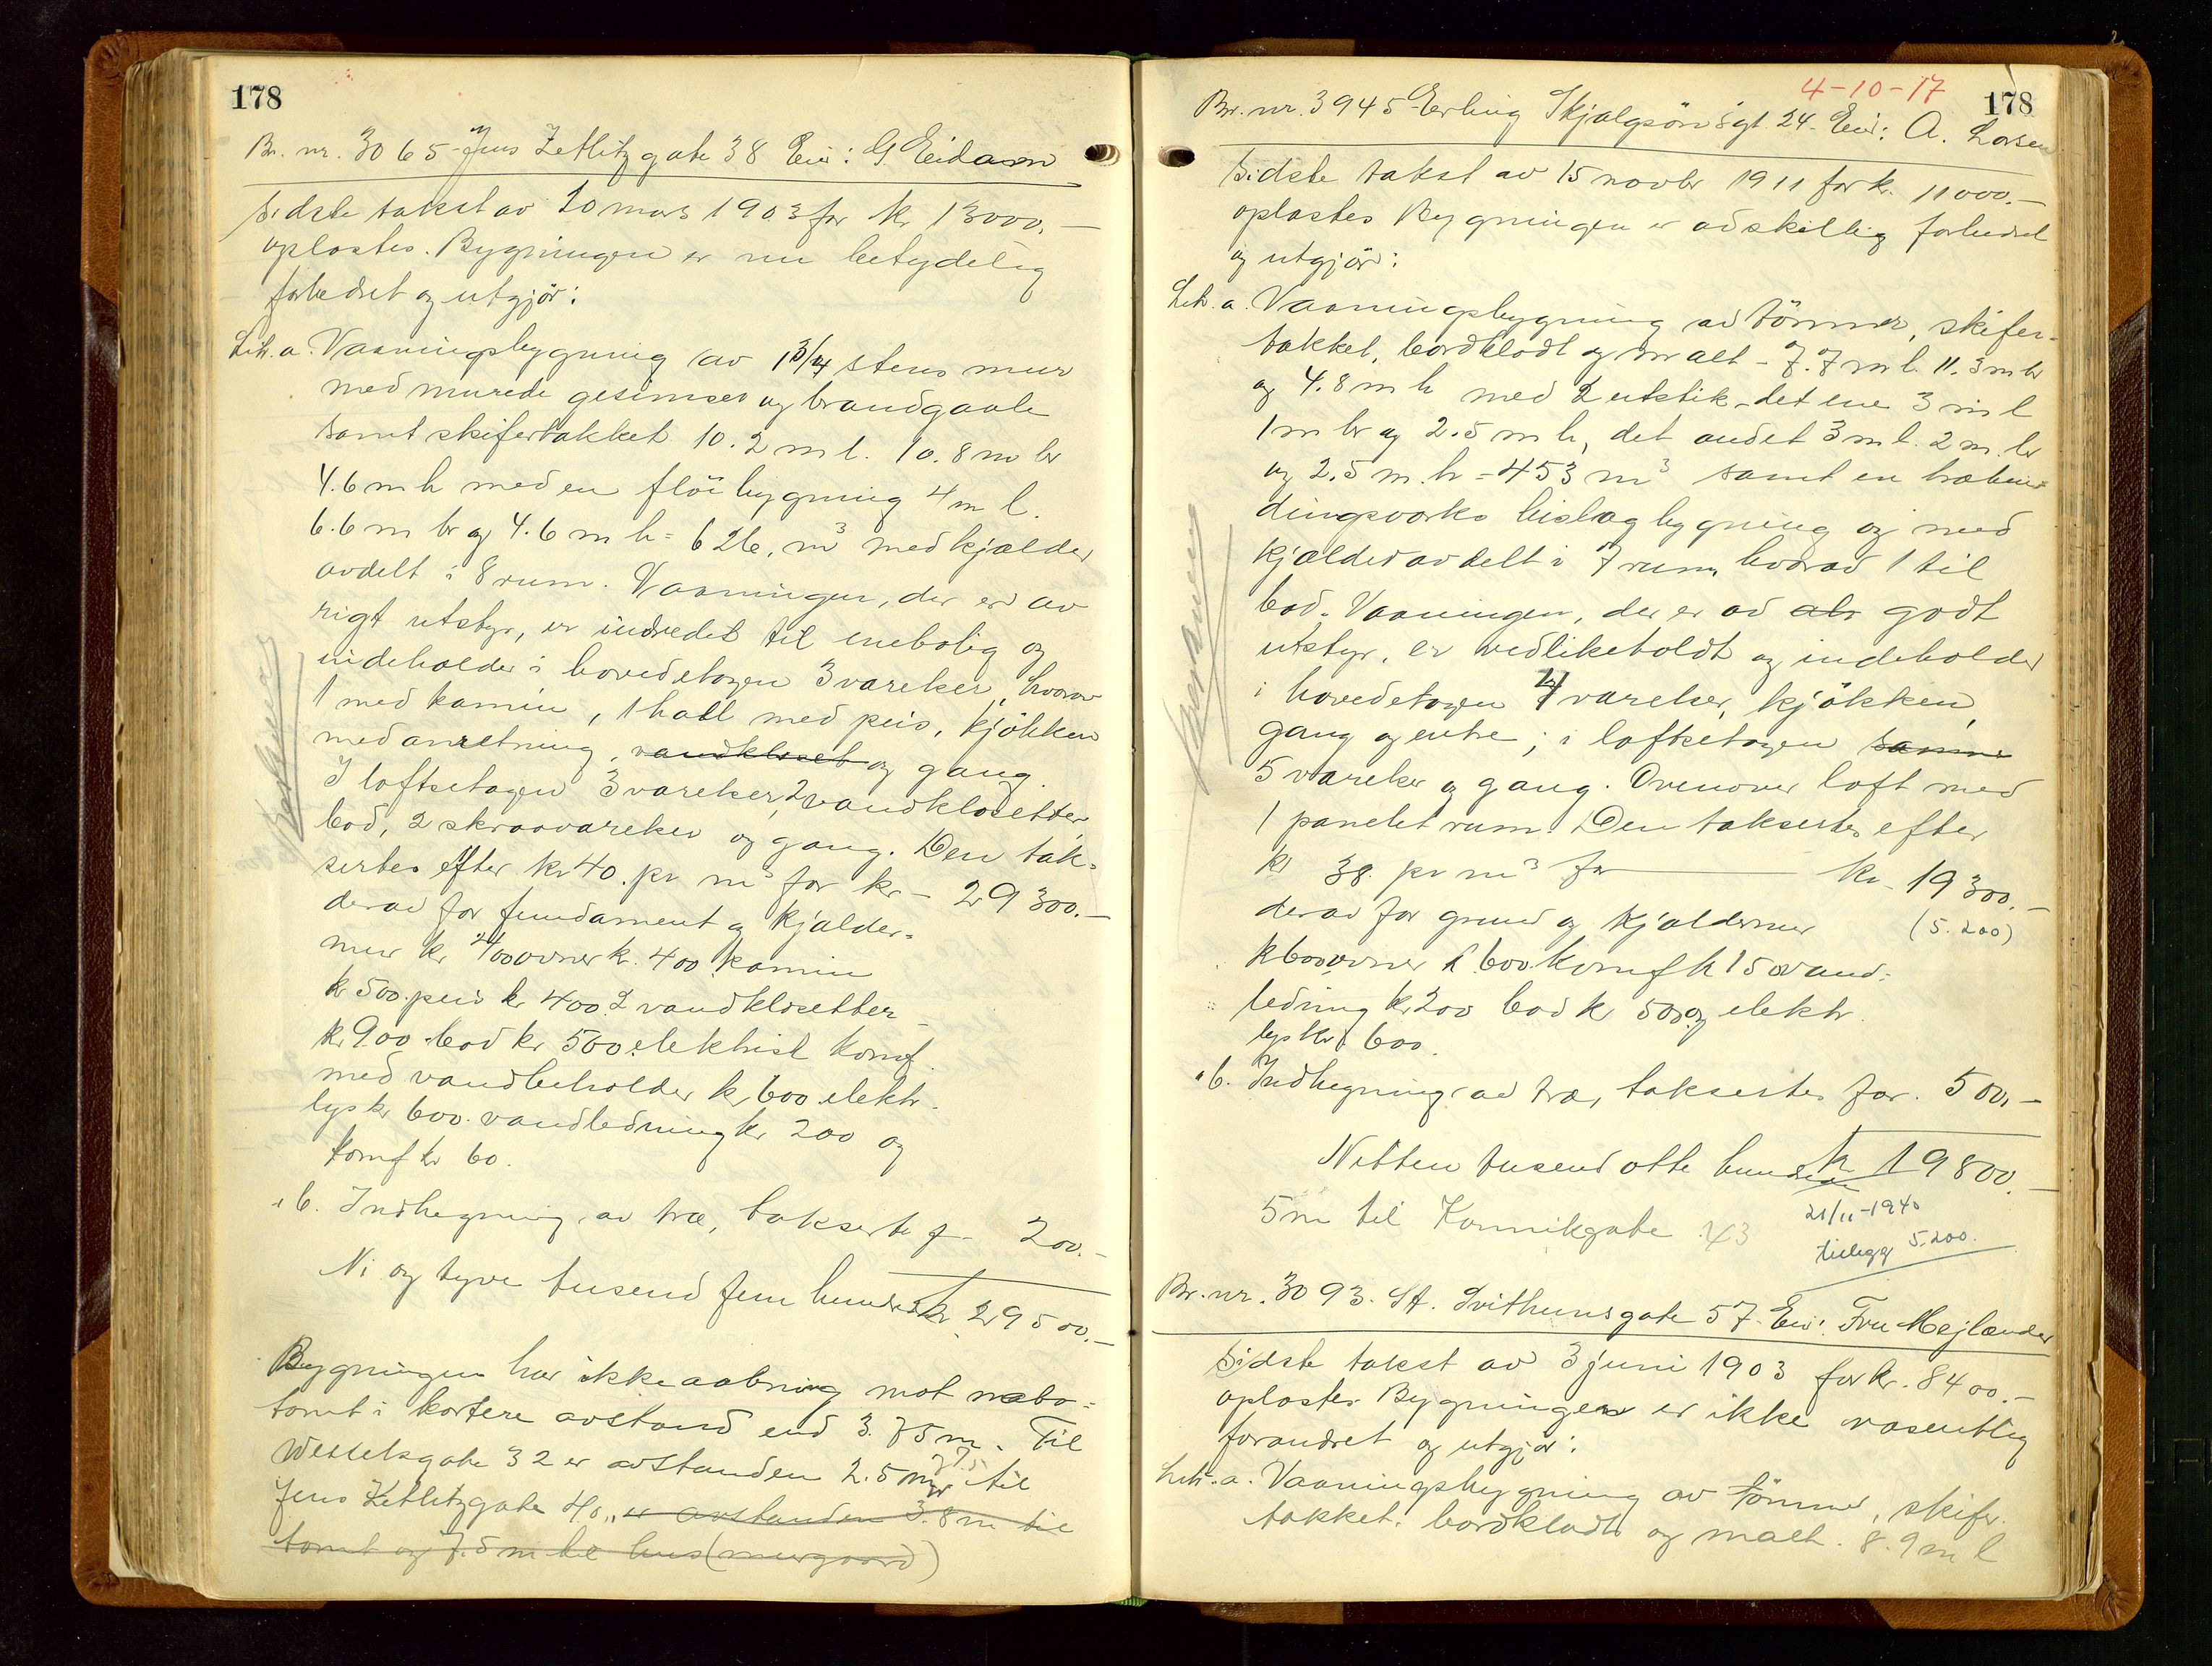 178
Br. nr. 3065 Jens Zetlitzgate 38 Eier: G. Eidamn
Sidste takst av 20 mars 1903 for kr 13000.—
oplæstes. Bygningen er nu betydelig
forbedret og utgjør:
Litr. a. Vaaningsbygning av 1 3/4 stens mur
med murede gesimser og brandgavle
samt skifertækket 10.2 m l. 10.8 m br
4.6 m h med en fløibygning 4 m l.
6.6 m br og 4.6 m h = 626. m³ med kjælder
avdelt i 8 rum. Vaaningen, der er av
rigt utstyr, er indredet til enebolig og
indeholder i hovedetagen 3 værelser, hvorav
1 med kamin, 1 hall med peis, kjøkken
med anretning, vandkloset og gang
I loftsetagen 3 værelser, 2 vandklosetter,
bad, 2 skraaværelser og gang. Den tak-
sertes efter kr 40. pr m³ for kr — 29300.—
derav for fundament og kjælder-
mur kr 2400 ovner kr. 400 kamin
kr 500. peis kr 400 2 vandklosetter
kr 900 bad kr 500. elektrisk komf.
med vandbeholder kr 600 elektr.
lys kr 600. vandledning kr 200 og
komf kr 60.
" b. Indhegning av træ, takserte f — 200.—
Ni og tyve tusend fem hundrede kr 29500.—
Bygningen har ikke aabning mot nabo-
tomt i kortere avstand end 3.75 m. Til
Wesselsgate 32 er avstanden 2.5 m og til
7.5
Jens Zetlitzgate 40 „ er avstanden 3.8 m til
tomt og 7.5 m til hus (murgaard)
4-10-17
178
Br. nr. 3945 Erling Skjalgsønsgt. 24. Eier: A. Larsen
Sidste takst av 15 novbr 1911 for kr. 11000.—
oplæstes Bygningen er adskillig forbedret
og utgjør:
Litr. a. Vaaningsbygning av tømmer, skifer-
tækket, bordklædt og malt — 7.7 m l. 11.3 m br
og 4.8 m h med 2 utstik — det ene 3 m l
1 m br og 2.5 m h, det andet 3 m l. 2 m. br
og 2.5 m. h = 453 m³ samt en træbin-
dingsværks bislagbygning og med
kjælder avdelt i 7 rum, hvorav 1 til
bad. Vaaningen, der er av alm godt
utstyr, er vedlikeholdt og indeholder
i hovedetagen 4 værelser, kjøkken,
gang og entre; i loftsetagen samme
5 værelser og gang. Ovenover loft med
1 panelet rum. Den taksertes efter
kr 38. pr m³ for — kr. 19300.—
derav for grund og kjældermur (5.200)
kr 600 ovner kr 600. komf kr 150 vand-
ledning kr 200 bad kr 500. og elektr.
lys kr 600.
" b. Indhegning av træ, taksertes for. 500.—
Nitten tusend otte hundrede kr 19800.—
5 m til Kannikgate 43
21/11-1940
tillegg 5.200.
Br. nr. 3093. St. Svithunsgate 57 Eier: Fru Mejlænder
Sidste takst av 3 juni 1903 for kr. 8400.—
oplæstes Bygningen er ikke væsentlig
forandret og utgjør:
Litr. a. Vaaningsbygning av tømmer, skifer-
tækket. bordklædt og malt. 8.9 m l